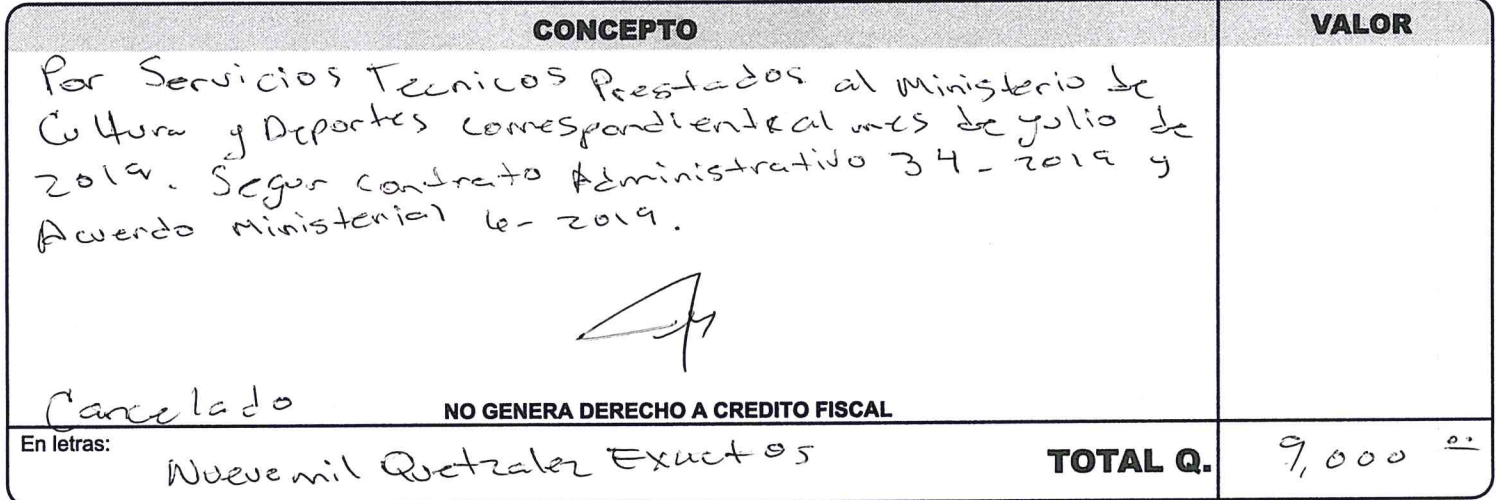 CONCEPTO VALOR
Por Servicios Tecnicos Prestados al Ministerio de
Cultura y Deportes correspondiente al mes de julio de
2019. Segun contrato Administrativo 34-2019 y
Acuerdo Ministerial 6-2019.
Cancelado NO GENERA DERECHO A CREDITO FISCAL
En letras: Nueve mil Quetzales Exactos TOTAL Q. 9,000 00